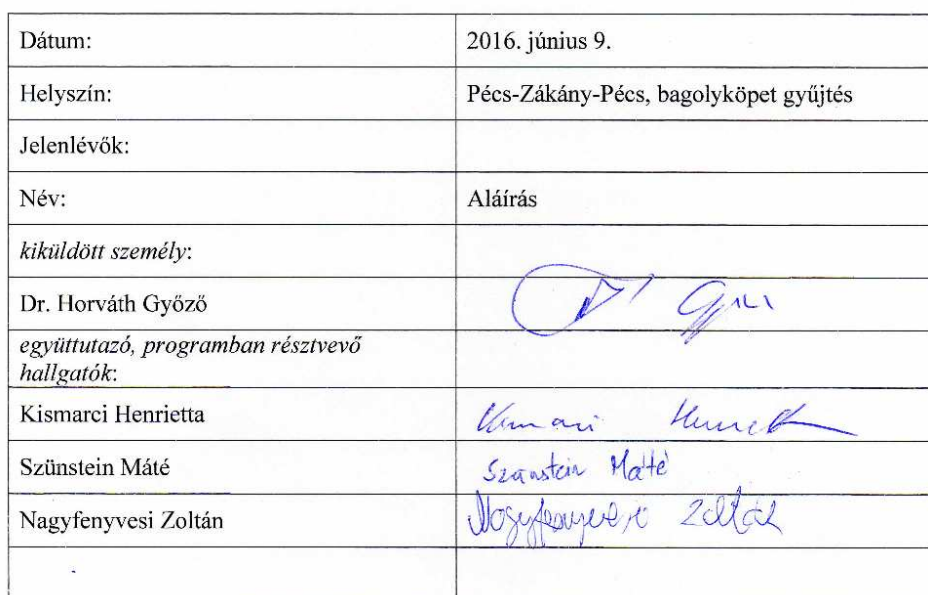 Dátum: 2016. június 9.
Helyszín: Pécs-Zákány-Pécs, bagolyköpet gyűjtés
Jelenlévők:
Név: Aláírás
kiküldött személy:
Dr. Horváth Győző
együttutazó, programban résztvevő
hallgatók:
Kismarci Henrietta
Szünstein Máté Szünstein Máté
Nagyfenyvesi Zoltán Nagyfenyvesi Zoltán